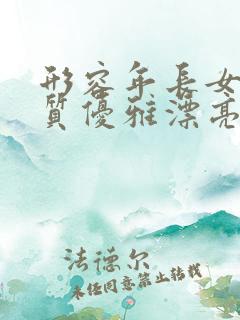 形容年長女
質優雅漂亮
法德尔
未经同意禁止转载